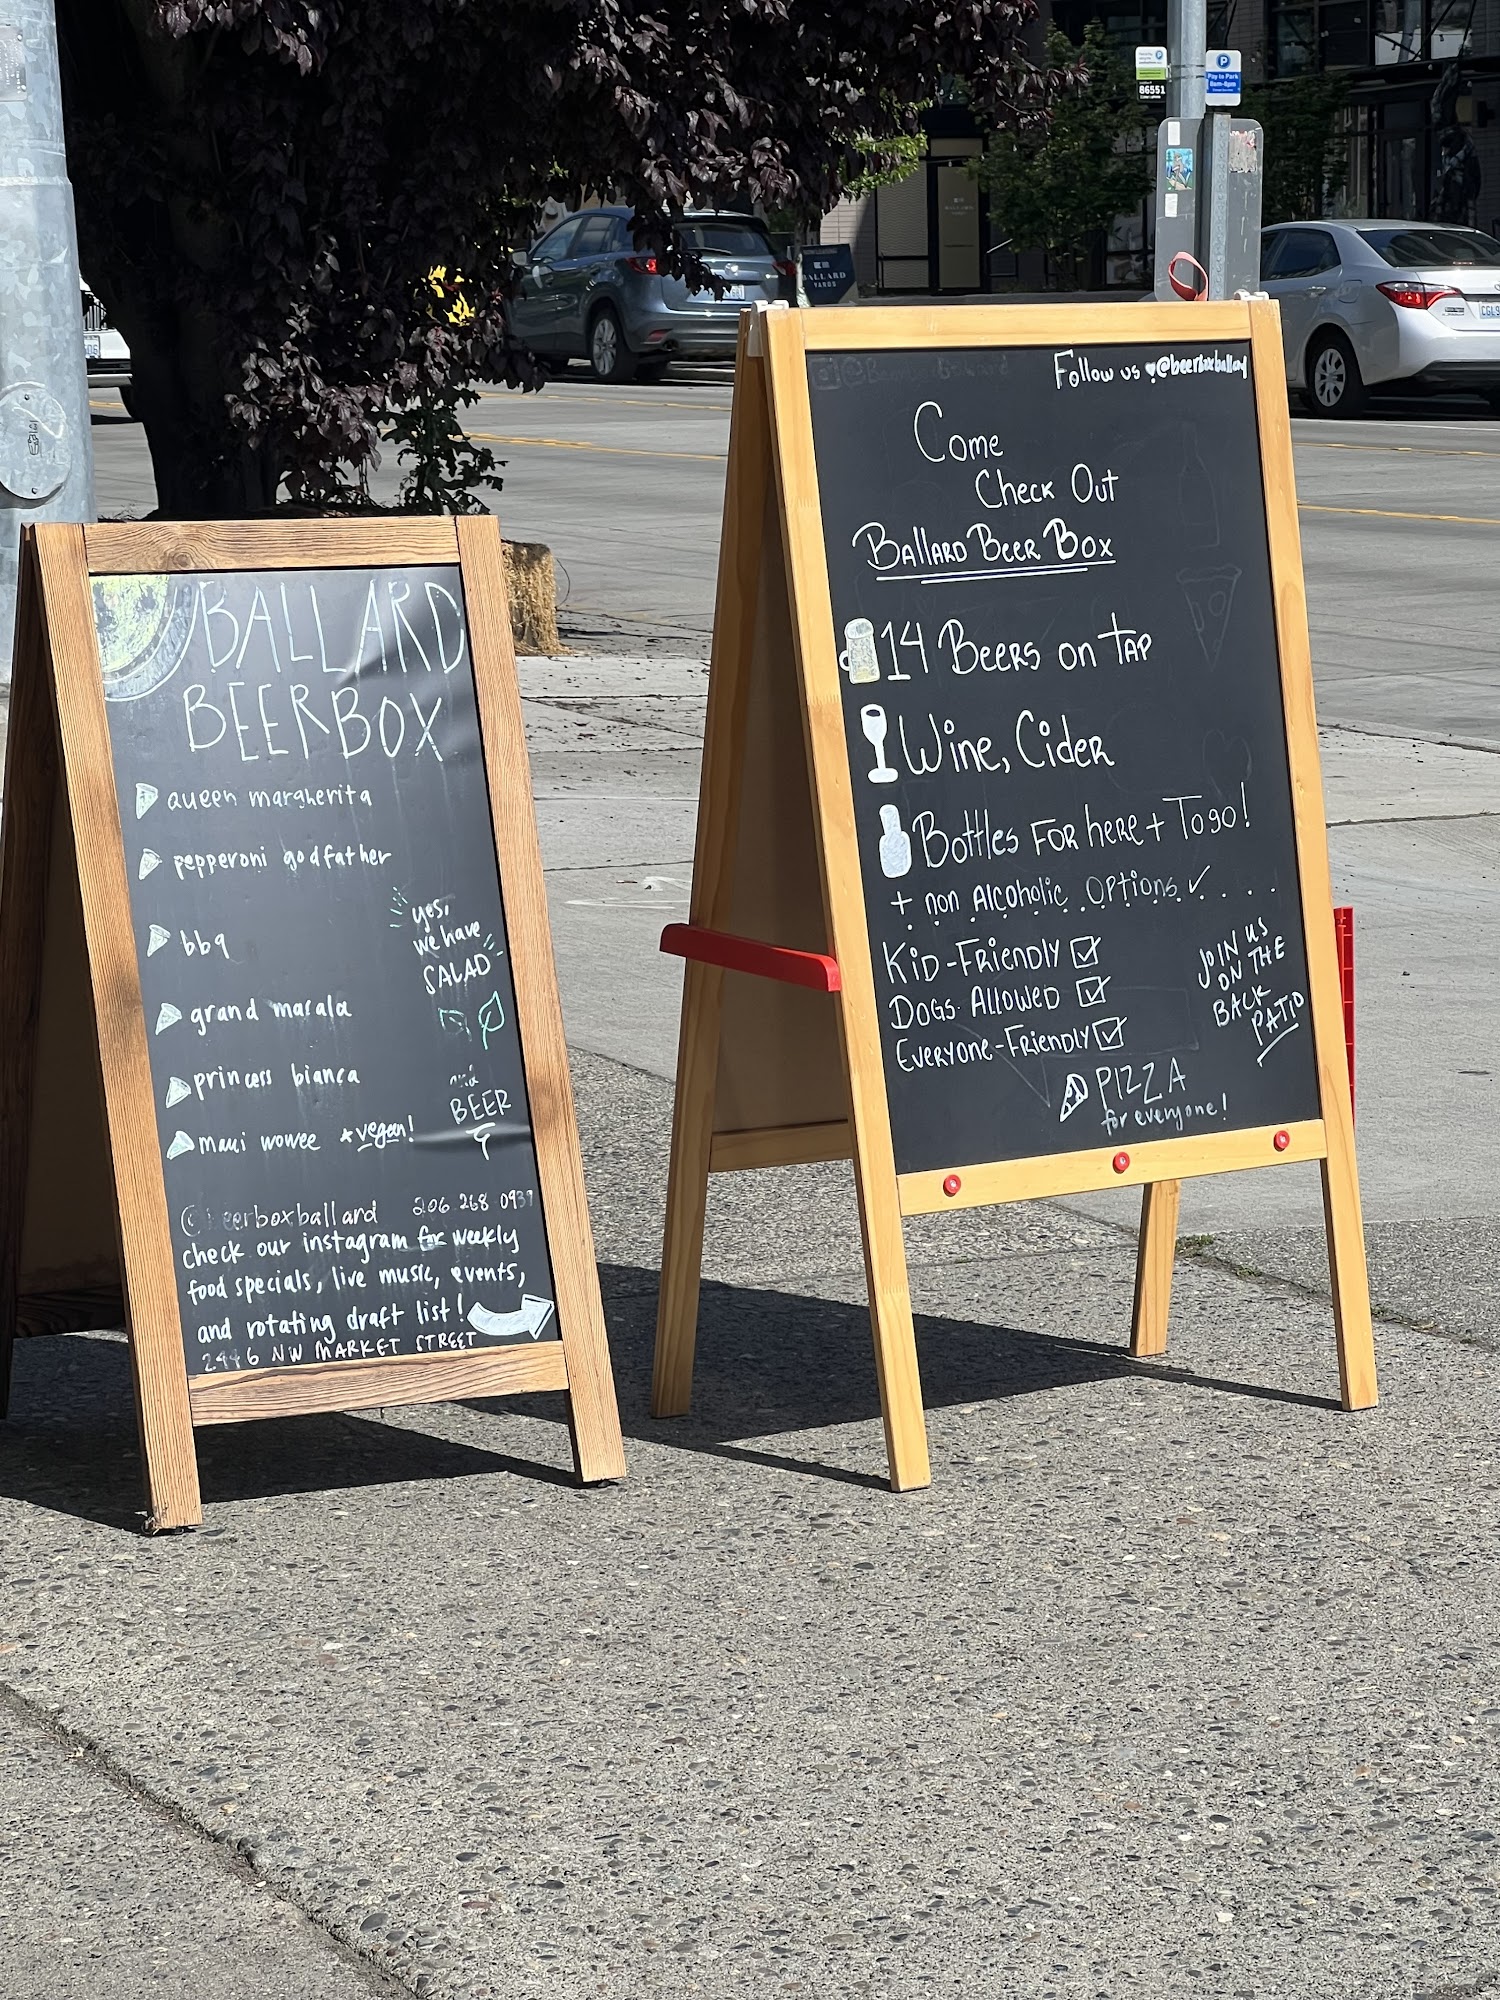 BALLARD
BEERBOX
queen margherita
pepperoni godfather
bbq
grand masala
princess bianca
maui wowee *vegan!
yes,
we have
SALAD
and
BEER
@beerboxballard 206 268 0939
check our instagram for weekly
food specials, live music, events,
and rotating draft list!
2446 NW MARKET STREET
Follow us @beerboxballard
Come
Check Out
Ballard Beer Box
14 Beers on Tap
Wine, Cider
Bottles For here + To go!
+ non Alcoholic Options
Kid-Friendly
Dogs Allowed
Everyone-Friendly
JOIN US
ON THE
BACK
PATIO
PIZZA
for everyone!
86551
P
Pay to Park
8am-6pm
BALLARD
YARDS